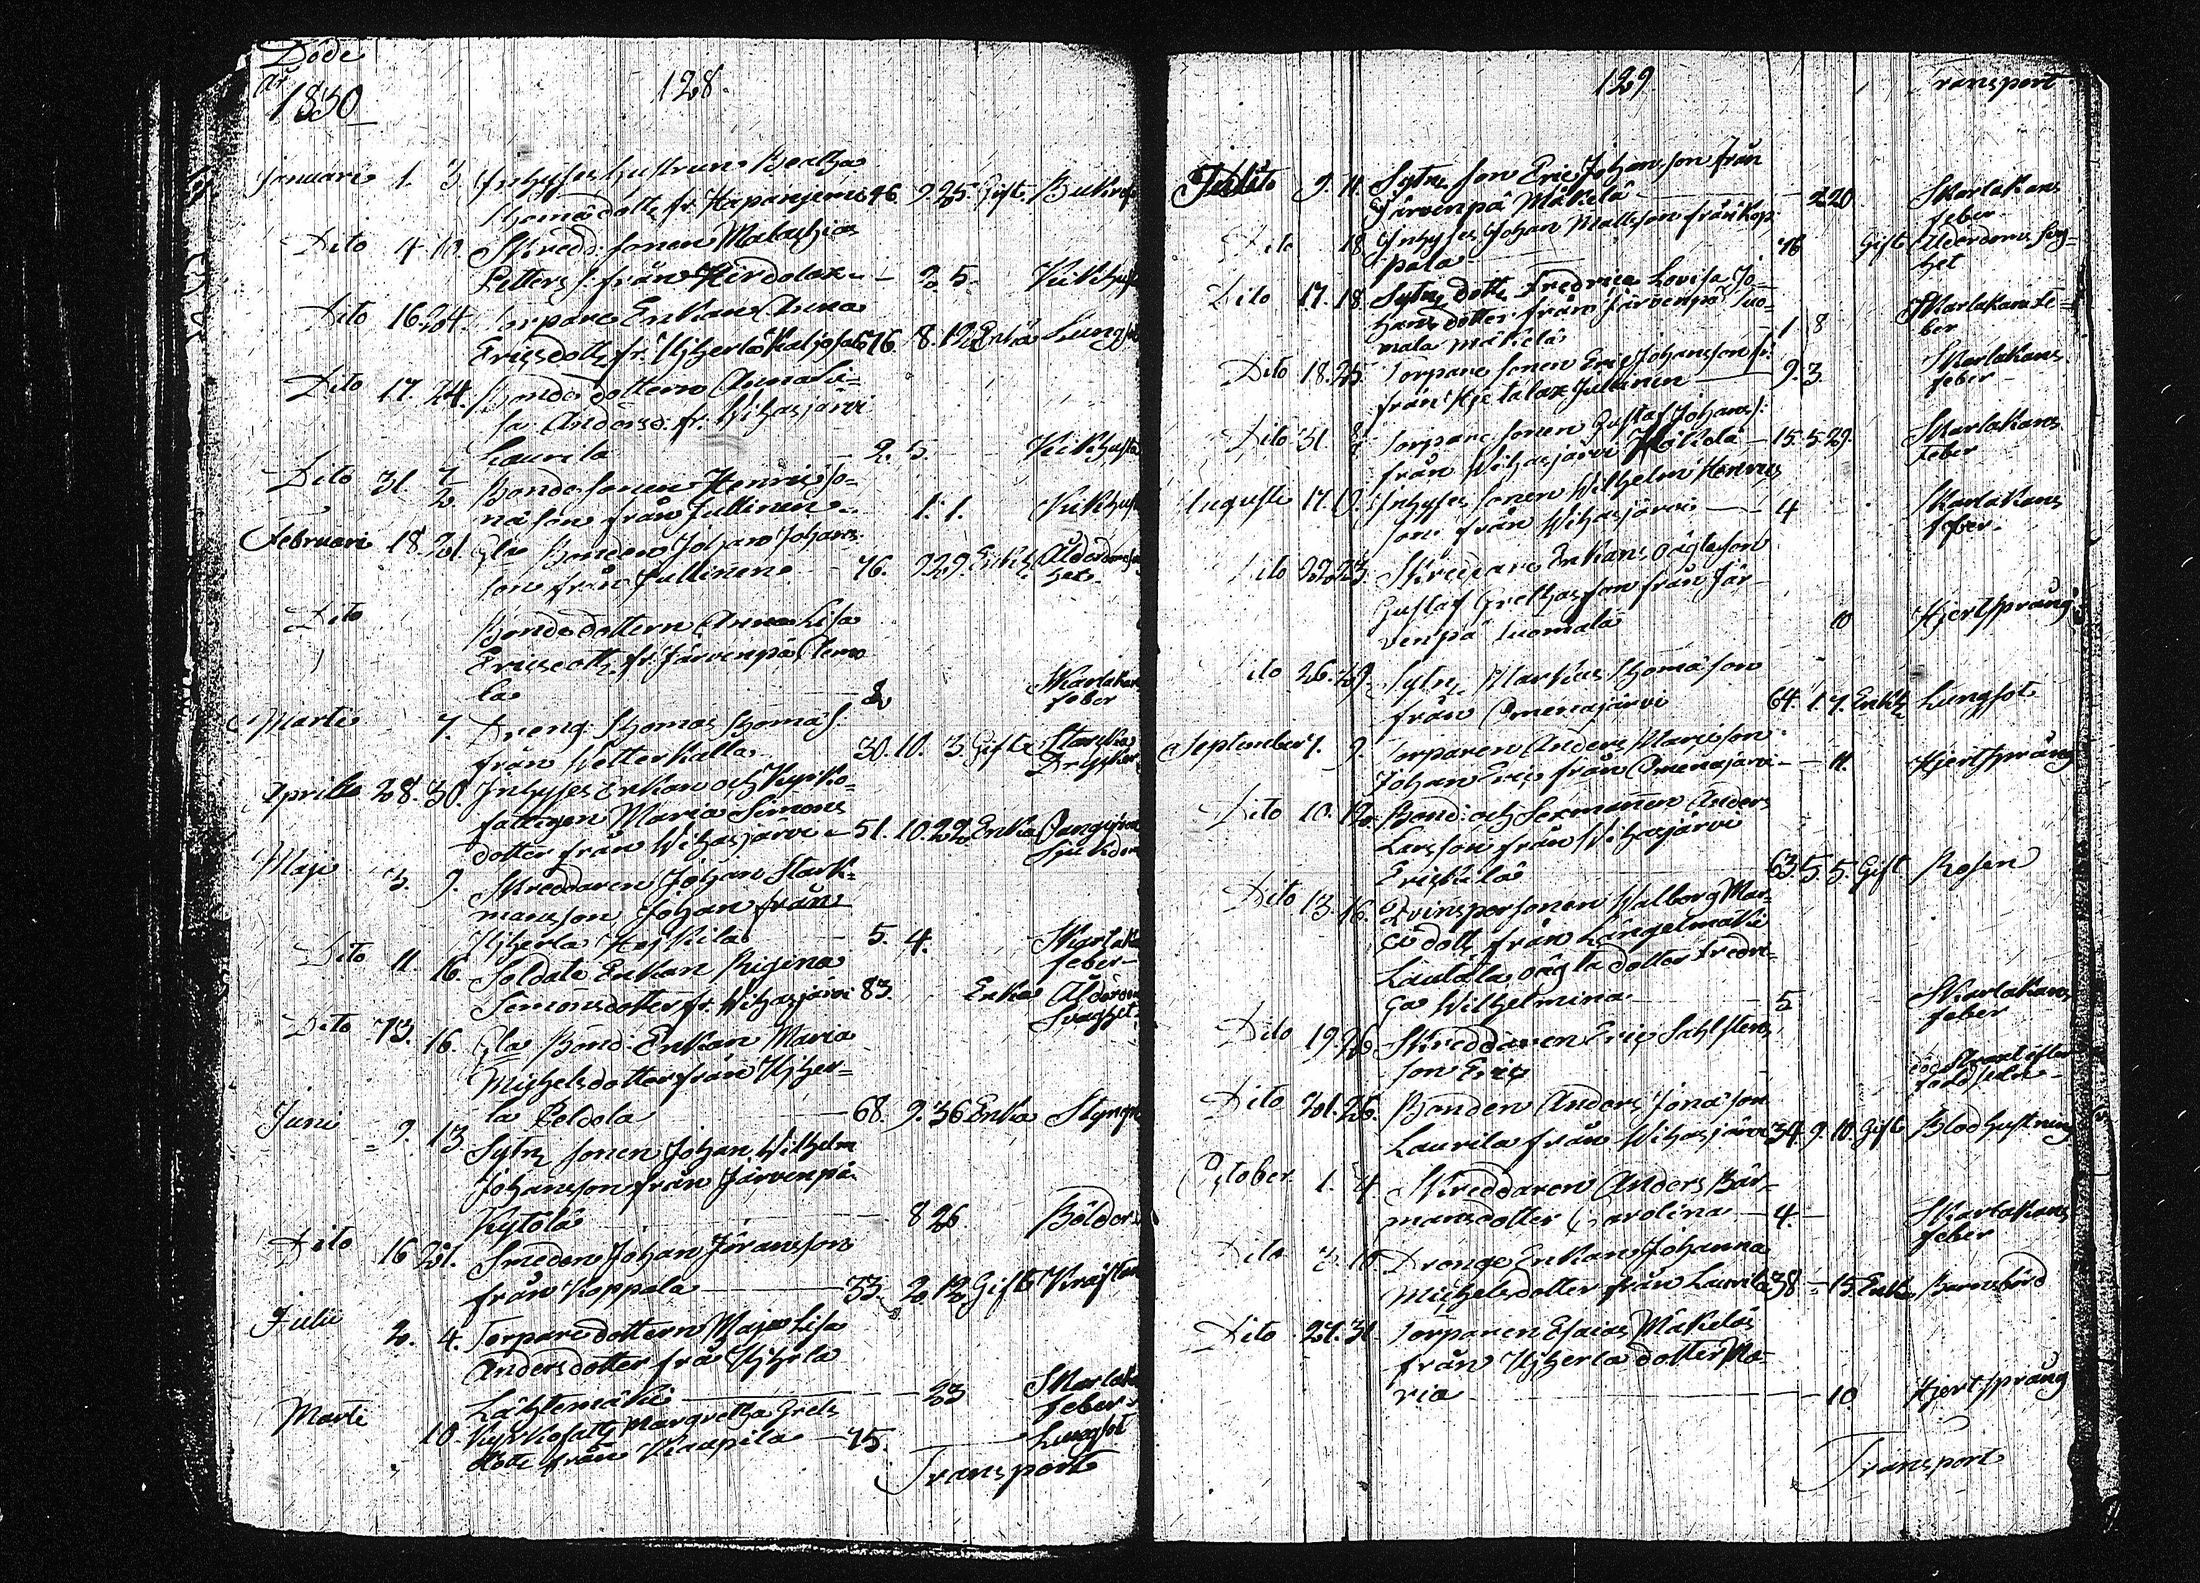 Döde
År
1830
128.
Januari 1. 3. Inhyses hustrun Beatha
Thomædottr fr. Haparijerni 46. 9. 25. Gift.
Dito 4. 10. Skredd. sonen Malachias
Petters s. från Hirdolax — 2. 5. Kikhust
Dito 16. 24. Torpare Enkan Anna
Ericsdottr, fr. Kyherlä 76. 8. 12 Enka Lungsot
Dito 17. 24. Bonde dottern Anna Li=
sa Andersd. fr. Wihasjärvi
Laurila 2. 5. Kikhusta
Dito 31. 7/2 Bonde sonen Henric Jo=
næson från Jullinen 1. 1. Kikhusta
Februari 18. 21. Gla Bonden Johan Johans
son från Jullinen 76. 9 29. Enkl. Ålderdoms
het.
Dito Bonde dottern Anna Lisa
Ericsdottr, fr. Järvenpä Clemo
la 8 Skarlakans
feber
Marti 7. Dreng. Thomas Thomas s.
från Vetterkulla 30. 10. 3. Gifte Starcka
Drycker
Aprill 28. 30. Inhyses Enkan och Kyrko=
fattigen Maria Simons
dotter från Wihasjärvi 51. 10. 22. Enka
Sjukdom
Maji 3. 9. Skreddaren Johan Stark=
mansson Johan från
Kyherla Heikkilä 5. 4. Skarlak
feber
Dito 11. 16. Soldate Enkan Regina
Simonsdotter, fr. Wihasjärvi 83. Enka Ålderdoms
Svaghet.
Dito 13. 16. Gla Bond. Enkan Maria
Michelsdotter från Kyher=
la Peldola 68. 9. 36 Enka Styng
Juni 9. 13. Sytn. sonen Johan Wilhelm
Johansson från Järvenpä
Kytölä 8 26 Bölder
Dito 16 21. Smeden Johan Jöransson
från Koppala 33. 2. 12 Gift Kräftan
Julii 2. 4. Torpare dottern Maja Lisa
Andersdotter från Kyherla
Lähtemäki 23 Skarlak
feber
Marti 10. Kyrkofattig Margretha Grels
dotter från Kaupila 75. Lungsot
Transport
129.
Transport
Julii
Dito 9. 11. Sytn. son Eric Johansson från
Järvenpä Mäkelä 2 20 Skarlakans
feber
Dito 18 Inhyses Johan Mattsson från Kop
pala 76 Gift Ålderdoms svag=
het
Dito 17. 18. Sytn. dottr. Fredrica Lovisa Jo=
hansdotter från Järvenpä Tuo=
mala Mäkelä 1 8 Skarlakans fe=
ber
Dito 18. 25. Torpare sonen Eric Johansson fr.
från Kjetalax Jullinin 9. 3. Skarlakans
feber
Dito 31. Torpare sonen Gustaf Johans s.
från Wihasjärvi Mäkelä 15. 5. 29. Skarlakans
Feber
Augusti 17. 19. Inhyses sonen Wilhelm Henrics
son från Wihasjärvi 4 Skarlakans
feber.
Dito 22. 23. Skreddare Enkans oägta son
Gustaf Grethasson från Jär=
venpä Tuomala 10 Hjertsprång
Dito 26. 29. Sytn. Markus Thomasson
från Omenajärvi 64. 1. 7. Enkl. Lungsot
September 7. 9. Torparen Anders Mariæson
Johan Eric från Omenajärvi 11. Hjertsprång
Dito 10. 12. Bond. och Sexmannen Anders
Larsson från Wihasjärvi
Erickilä 63. 5 5. Gift Rosen
Dito 13. 16. Qvinspersonen Walborg Mar=
ci dott. från Längelmäki
Lautala oägta dotter Fredri=
ca Wilhelmina 5 Skarlakans
feber
Dito 19. 26. Skreddaren Eric Sahlsten
son Eric död strax efter
födelsen
Dito 21. 26. Bonden Anders Jonæson
Laurila från Wihasjärvi 34. 9. 10. Gift Blodhustning
October 1. 4. Skreddaren Anders Bär=
mansdotter Carolina 4. Skarlakans
feber
Dito 3. 10 Drenge Enkan Johanna
Michelsdotter från Laurila 38 15. Enka Barnsbörd
Dito 27. 31. Torparen Esaias Mäkeläs
från Kyherla dotter Ma=
ria 10 Hjertsprång
Transport